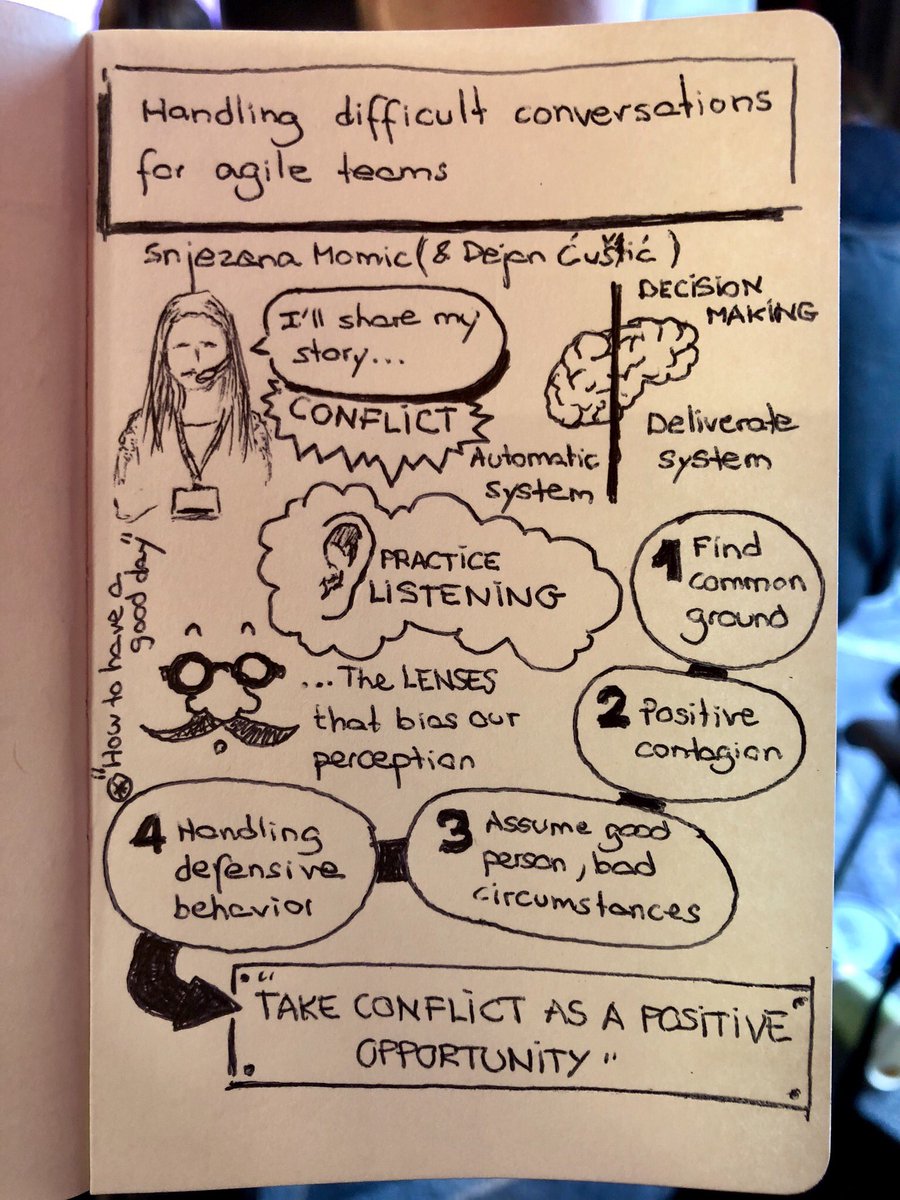 Handling difficult conversations
for agile teams
Snjezana Momic (& Dejan Ćuštić)
I'll share my
story...
CONFLICT
DECISION
MAKING
Automatic
system
Deliverate
system
PRACTICE
LISTENING
"How to have a
good day"
...The LENSES
that bias our
perception
1 Find
common
ground
2 Positive
contagion
3 Assume good
person, bad
circumstances
4 Handling
defensive
behavior
"TAKE CONFLICT AS A POSITIVE
OPPORTUNITY"